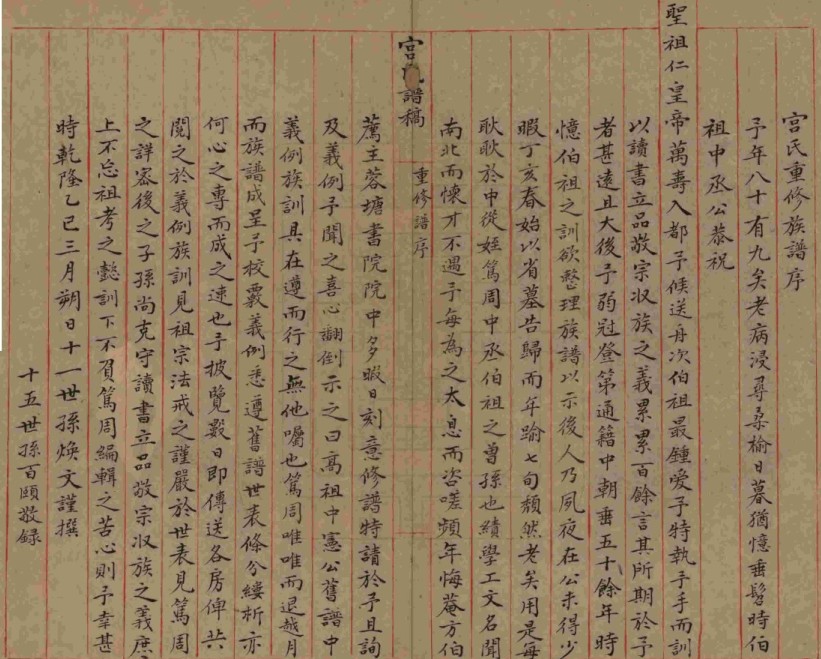 宮氏重修族譜序
予年八十有九矣老病浸尋桑榆日暮猶憶垂髫時伯
祖中丞公恭祝
聖祖仁皇帝萬壽入都予候送舟次伯祖最鍾愛予特執予手而訓
以讀書立品敬宗收族之義累累百餘言其所期於予
者甚遠且大後予弱冠登第通籍中朝垂五十餘年時
憶伯祖之訓欲整理族譜以示後人乃夙夜在公未得少
暇丁亥春始以省墓告歸而年踰七旬頹然老矣用是每
耿耿於中從姪篤周中丞伯祖之曾孫也績學工文名聞
南北而懷才不遇予每為之太息而咨嗟頻年悔菴方伯
宮 譜稿
重修譜序
薦主蓉塘書院院中多暇日刻意修譜特請於予且詢
及義例予聞之喜心翻倒示之曰高祖中憲公舊譜中
義例族訓具在遵而行之無他囑也篤周唯唯而退越月
而族譜成呈予校覈義例悉遵舊譜世表條分縷析亦
何心之專而成之速也予披覽數日即傳送各房俾共
閱之於義例族訓見祖宗法戒之謹嚴於世表見篤周
之詳密後之子孫尚克守讀書立品敬宗收族之義庶
上不忘祖考之懿訓下不負篤周編輯之苦心則予幸甚
時乾隆乙巳三月朔日十一世孫煥文謹撰
十五世孫百頤敬錄